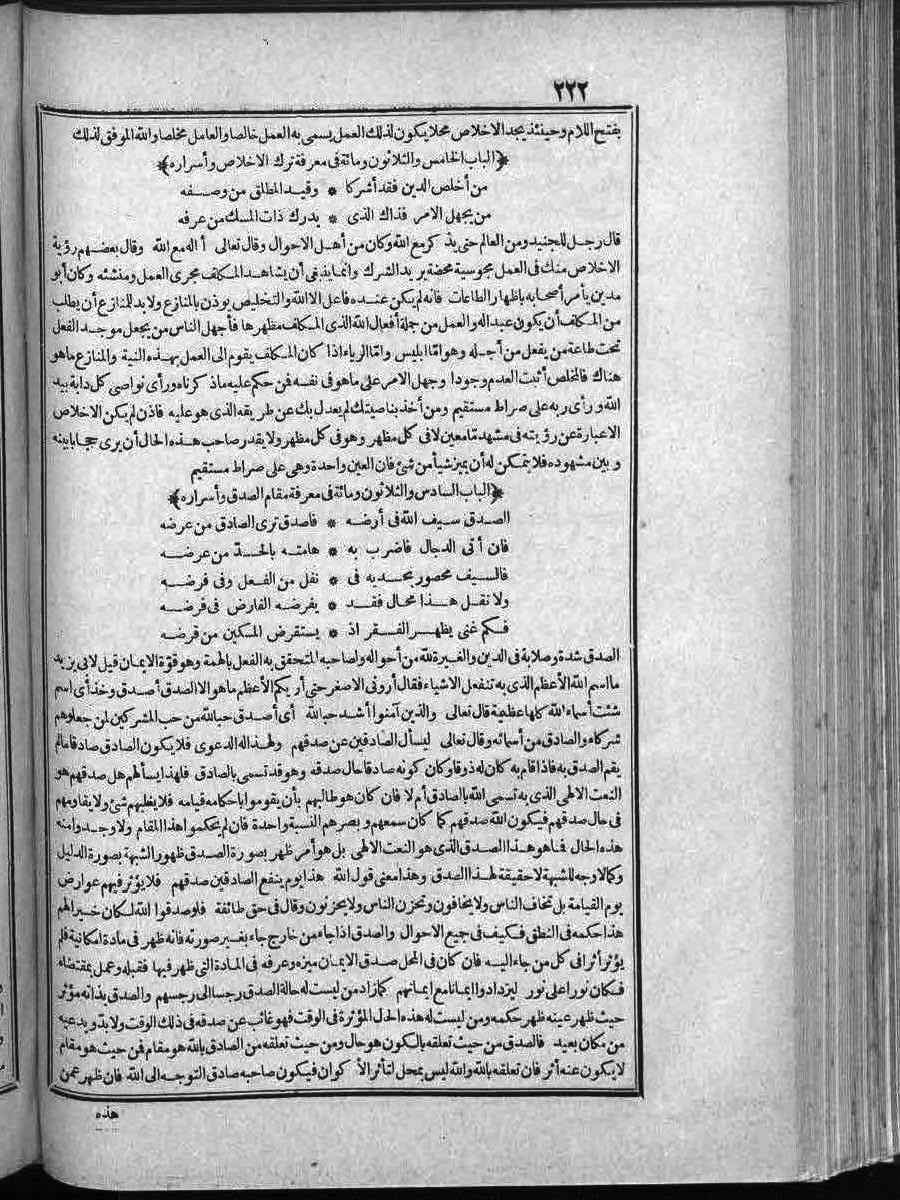 ٢٢٢
بفتح اللام وحينئذ يجد الاخلاص محلا يكون لذلك العمل يسمى به العمل خالصا والعامل مخلصا والله الموفق لذلك
﴿الباب الخامس والثلاثون ومائة فى معرفة ترك الاخلاص وأسراره﴾
من أخلص الدين فقد أشركا * وقيد المطلق من وصفه
من يجهل الامر فذاك الذى * يدرك ذات المسك من عرفه
قال رجل للجنيد ومن العالم حتى يذكر مع الله وكان من أهل الاحوال وقال تعالى أاله مع الله وقال بعضهم رؤية
الاخلاص منك فى العمل مجوسية محضة يريد الشرك وانما ينبغى أن يشاهد المكلف مجرى العمل ومنشئه وكان أبو
مدين يأمر أصحابه باظهار الطاعات فانه لم يكن عنده فاعل الا الله والتخليص يوذن بالمنازع ولابد للمنازع أن يطلب
من المكلف أن يكون عبدا له والعمل من جملة أفعال الله الذى المكلف مظهرها فأجهل الناس من يجعل موجد الفعل
تحت طاعة من يفعل من أجله وهو امّا ابليس وامّا الرياء اذا كان المكلف يقوم الى العمل بهذه النية والمنازع ما هو
هناك فالمخلص أثبت العدم وجودا وجهل الامر على ما هو فى نفسه فمن حكم عليه ما ذكرناه ورأى نواصى كل دابة بيد
الله ورأى ربه على صراط مستقيم ومن أخذ بناصيتك لم يعدل بك عن طريقه الذى هو عليه فاذن لم يكن الاخلاص
الا عبارة عن رؤيته فى مشهد تما معين لا فى كل مظهر وهو فى كل مظهر ولا يقدر صاحب هذه الحال أن يرى حجابا بينه
وبين مشهوده فلا يتمكن له أن يميز شيأ من شئ فان العين واحدة وهى على صراط مستقيم
﴿الباب السادس والثلاثون ومائة فى معرفة مقام الصدق وأسراره﴾
الصدق سيف الله فى أرضه * فاصدق ترى الصادق من عرضه
فان أتى الدجال فاضرب به * هامته بالحدّ من عرضه
فالسيف محصور بحديه فى * نفل من الفعل وفى فرضه
ولا تقل هذا محال فقد * يفرضه الفارض فى فرضه
فكم غنى يظهر الفقر اذ * يستقرض المسكين من قرضه
الصدق شدة وصلابة فى الدين والغيرة لله من أحواله ولصاحبه المتحقق به الفعل بالهمة وهو قوّة الايمان قيل لابى يزيد
ما اسم الله الأعظم الذى به تنفعل الاشياء فقال أرونى الاصغر حتى أريكم الأعظم ما هو الا الصدق أصدق وخذ أى اسم
شئت أسماء الله كلها عظيمة قال تعالى والذين آمنوا أشد حبا لله أى أصدق حبا لله من حب المشركين لمن جعلوهم
شركاء والصادق من أسمائه وقال تعالى ليسأل الصادقين عن صدقهم ولهذا له الدعوى فلا يكون الصادق صادقا ما لم
يقم الصدق به فاذا قام به كان له ذوقا وكان كونه صادقا حال صدقه وهو قد تسمى بالصادق فلهذا يسألهم هل صدقهم هو
النعت الالهى الذى به تسمى الله بالصادق أم لا فان كان هو طالبهم بأن يقوموا باحكامه قيامه فلا يغلبهم شئ ولا يقاومهم
فى حال صدقهم فيكون الله صدقهم كما كان سمعهم وبصرهم النسبة واحدة فان لم يحكموا هذا المقام ولا وجدوا منه
هذه الحال فما هو هذا الصدق الذى هو النعت الالهى بل هو أمر ظهر بصورة الصدق ظهور الشبهة بصورة الدليل
وكما لا وجه للشبهة لا حقيقة لهذا الصدق وهذا معنى قول الله هذا يوم ينفع الصادقين صدقهم فلا يؤثر فيهم عوارض
يوم القيامة بل تخاف الناس ولا يخافون وتحزن الناس ولا يحزنون وقال فى حق طائفة فلو صدقوا الله لكان خيرا لهم
هذا حكمه فى النطق فكيف فى جميع الاحوال والصدق اذا جاء من خارج جاء بغير صورته فانه ظهر فى مادة امكانية فلم
يؤثر أثرا فى كل من جاء اليه فان كان فى المحل صدق الايمان ميزه وعرفه فى المادة التى ظهر فيها فقبله وعمل بمقتضاه
فكان نورا على نور ليزدادوا ايمانا مع ايمانهم كما زاد من ليست له حالة الصدق رجسا الى رجسهم والصدق بذاته مؤثر
حيث ظهر عينه ظهر حكمه ومن ليست له هذه الحال المؤثرة فى الوقت فهو غائب عن صدقه فى ذلك الوقت ولابدّ ويدعيه
من مكان بعيد فالصدق من حيث تعلقه بالكون هو حال ومن حيث تعلقه من الصادق بالله هو مقام فمن حيث هو مقام
لا يكون عنه أثر فان تعلقه بالله والله ليس بمحل لتأثر الأكوان فيكون صاحبه صادق التوجه الى الله فان ظهر عمن
هذه